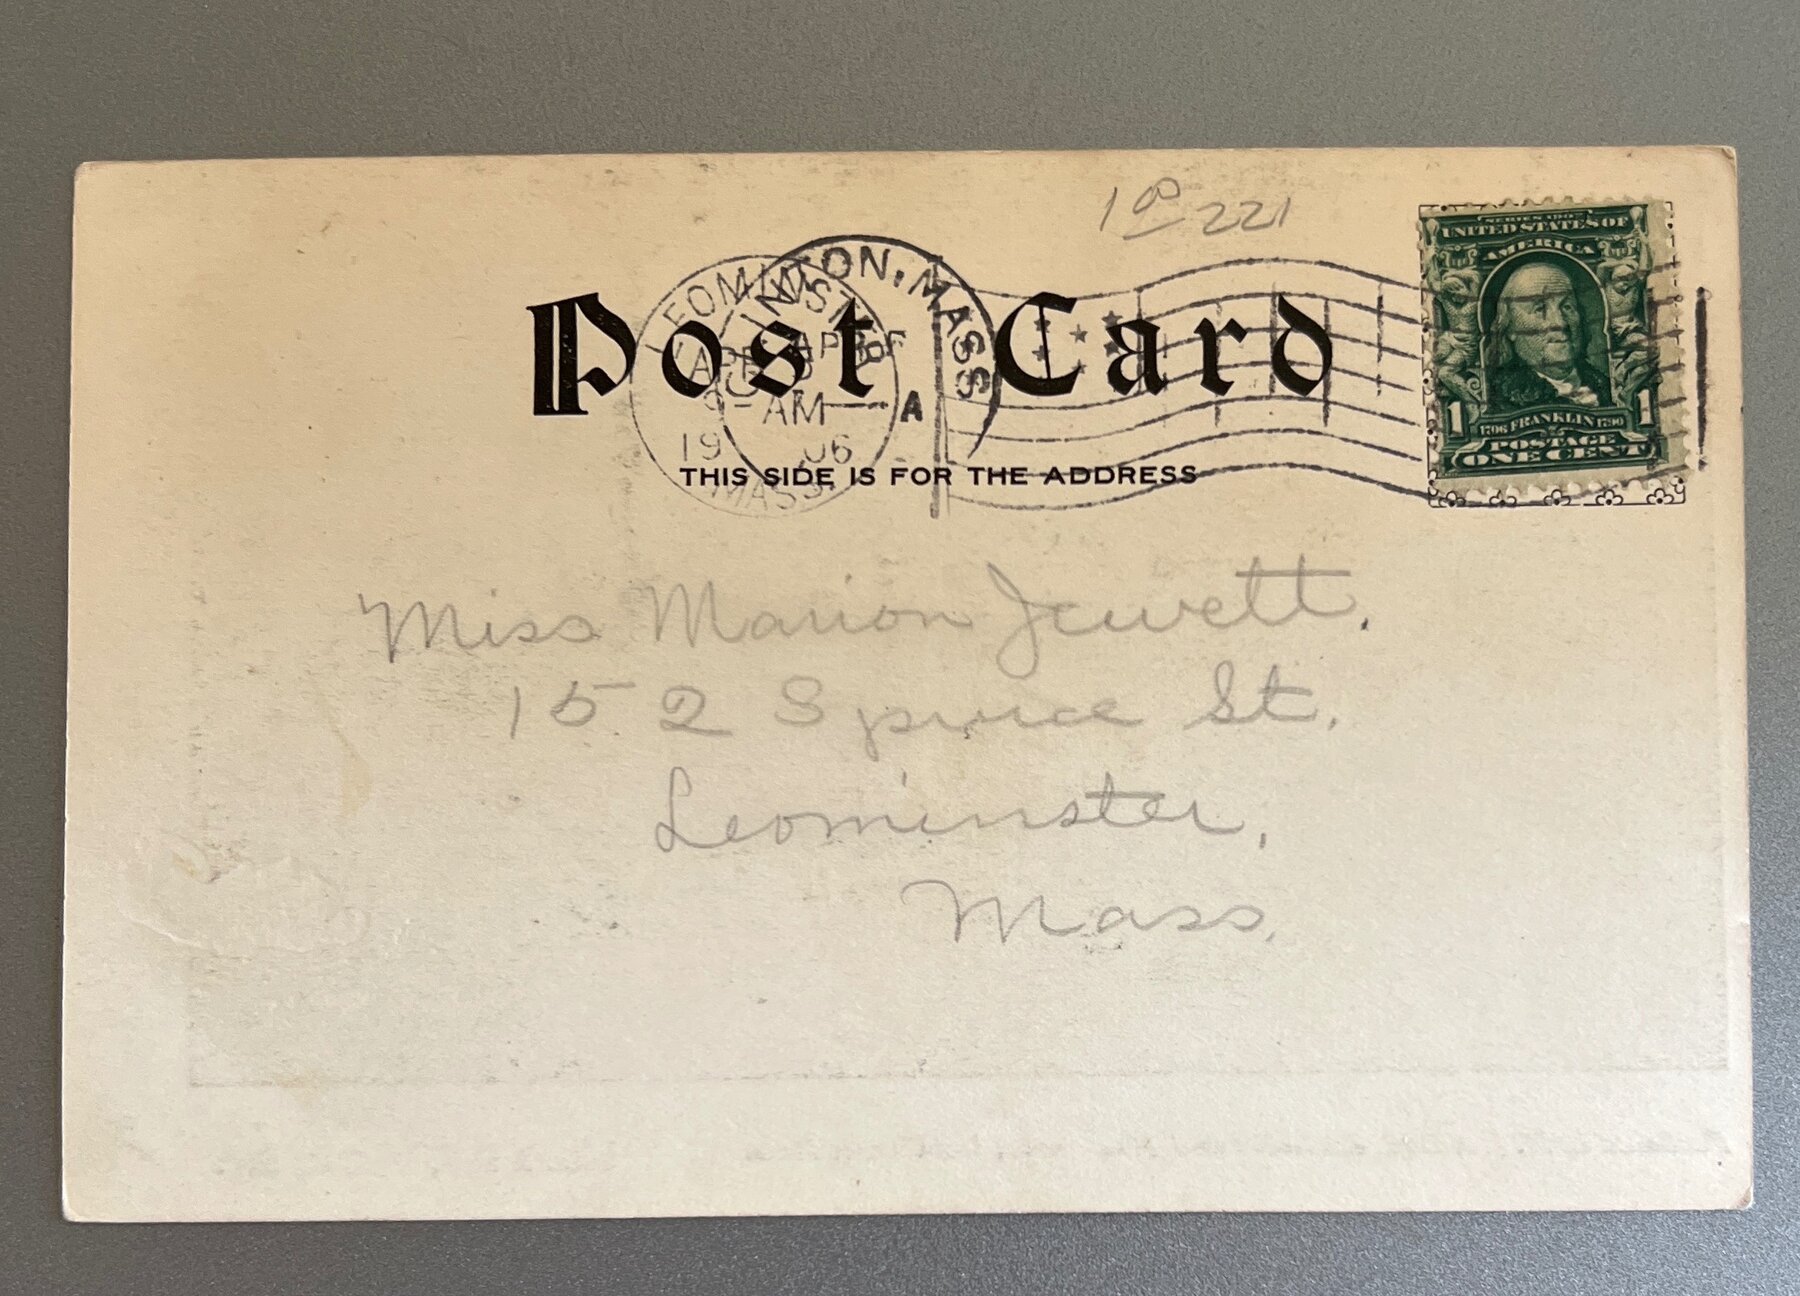 1 00 221
SERIES 1902
UNITED STATES OF
AMERICA
LEOMINSTER
MASS.
APR
9-AM
19 06
NTON, MASS
A
Post Card
THIS SIDE IS FOR THE ADDRESS
1 1706 FRANKLIN 1790 1
POSTAGE
ONE CENT
Miss Marion Jewett.
152 Spruce St.
Leominster,
Mass.